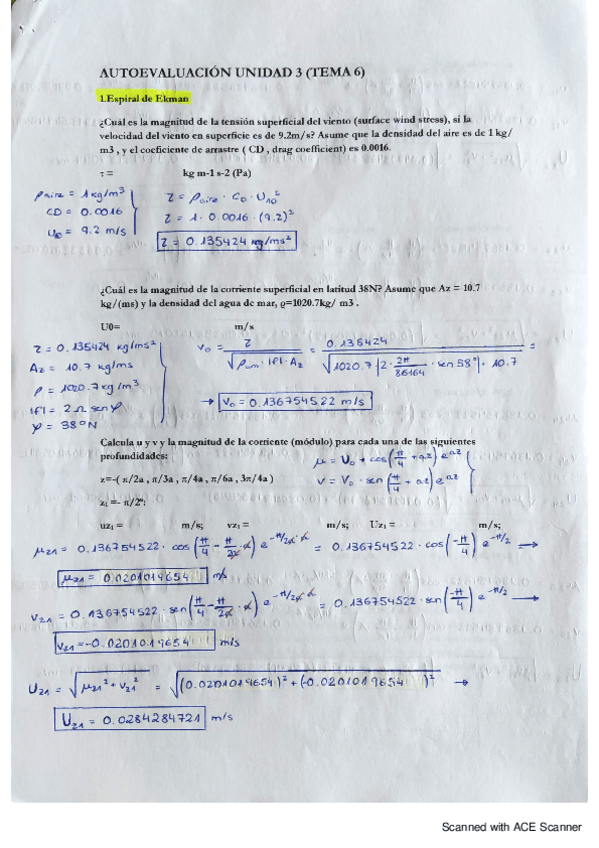 AUTOEVALUACIÓN UNIDAD 3 (TEMA 6)
1.Espiral de Ekman
¿Cuál es la magnitud de la tensión superficial del viento (surface wind stress), si la
velocidad del viento en superficie es de 9.2m/s? Asume que la densidad del aire es de 1 kg/
m3 , y el coeficiente de arrastre ( CD , drag coefficient) es 0.0016.
τ = kg m-1 s-2 (Pa)
ρaire = 1 kg/m³
CD = 0.0016
U10 = 9.2 m/s
Z = ρaire · CD · U10²
Z = 1 · 0.0016 · (9.2)²
Z = 0.135424 kg/ms²
¿Cuál es la magnitud de la corriente superficial en latitud 38N? Asume que Az = 10.7
kg/(ms) y la densidad del agua de mar, ϱ=1020.7kg/ m3 .
U0= m/s
Z = 0.135424 kg/ms²
Az = 10.7 kg/ms
ρ = 1020.7 kg/m³
|f| = 2 Ω sen φ
φ = 38°N
V0 = Z / √(ρ · |f| · Az) = 0.135424 / √(1020.7 |2 · 2π/86164 · sen 38°| · 10.7) =
→ V0 = 0.136754522 m/s
Calcula u y v y la magnitud de la corriente (módulo) para cada una de las siguientes
profundidades:
z=-( π/2a , π/3a , π/4a , π/6a , 3π/4a )
μ = U0 · cos(π/4 + az) e^az
v = V0 · sen(π/4 + az) e^az
z₁ =- π/2ª:
uz₁ = m/s; vz₁ = m/s; Uz₁ = m/s;
μz1 = 0.136754522 · cos(π/4 - π/2a · a) e^-π/2a · a = 0.136754522 · cos(-π/4) e^-π/2 →
μz1 = 0.0201019654 m/s
Vz1 = 0.136754522 · sen(π/4 - π/2a · a) e^-π/2a · a = 0.136754522 · sen(-π/4) e^-π/2 →
Vz1 = -0.0201019654 m/s
Uz1 = √(μz1² + vz1²) = √((0.0201019654)² + (-0.0201019654)²) →
Uz1 = 0.0284284721 m/s
Scanned with ACE Scanner